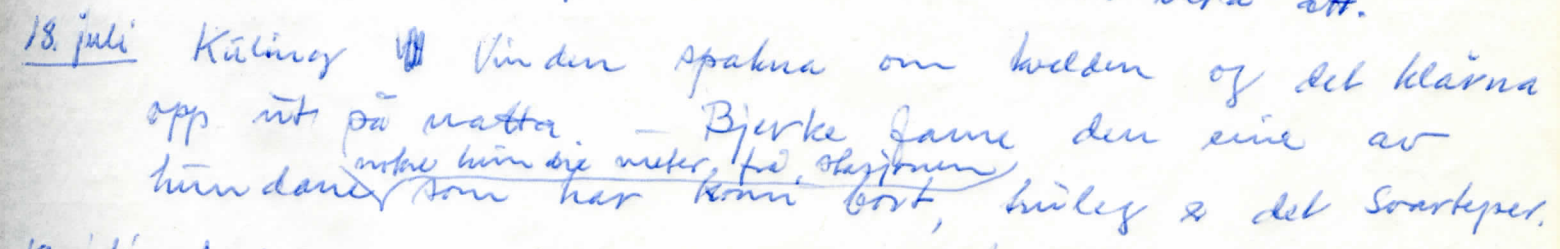 att.
18. juli Kuling Vinden spakna om kvelden og det klårna
opp ut på natta. – Bjerke fann den eine av
nokre hundre meter frå stasjonen
hundane som har komi bort, truleg er det Svarteper.